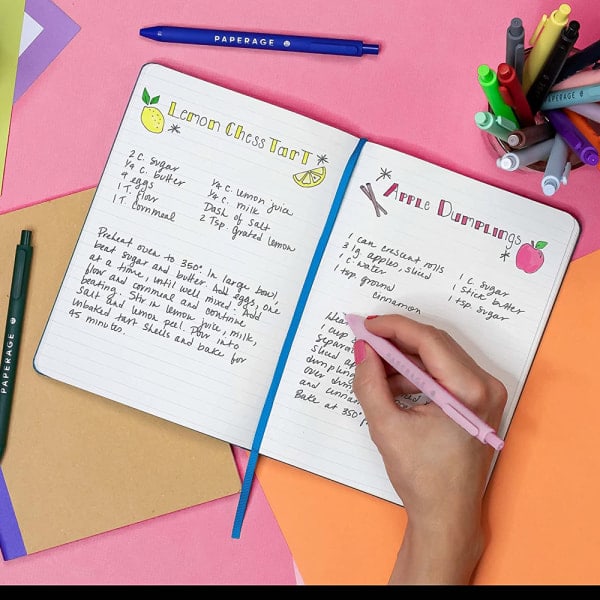 PAPERAGE
Lemon Chess Tart
2 C. sugar
1/4 C. butter
9 eggs
1 T. flour
1 T. cornmeal
1/4 C. lemon juice
1/4 C. milk
Dash of salt
2 Tsp. grated lemon
Preheat oven to 350°. In large bowl,
beat sugar and butter. Add eggs, one
at a time, until well mixed. Add
flour and cornmeal and continue
beating. Stir in lemon juice, milk,
salt and lemon peel. Pour into
unbaked tart shells and bake for
45 minutes.
Apple Dumplings
1 can crescent rolls
3 lg. apples, sliced
1 C. water
1 tsp. ground
cinnamon
1 C. sugar
1 stick butter
1 tsp. sugar
1 cup
sliced
over
and
Bake at 350°
PAPERAGE